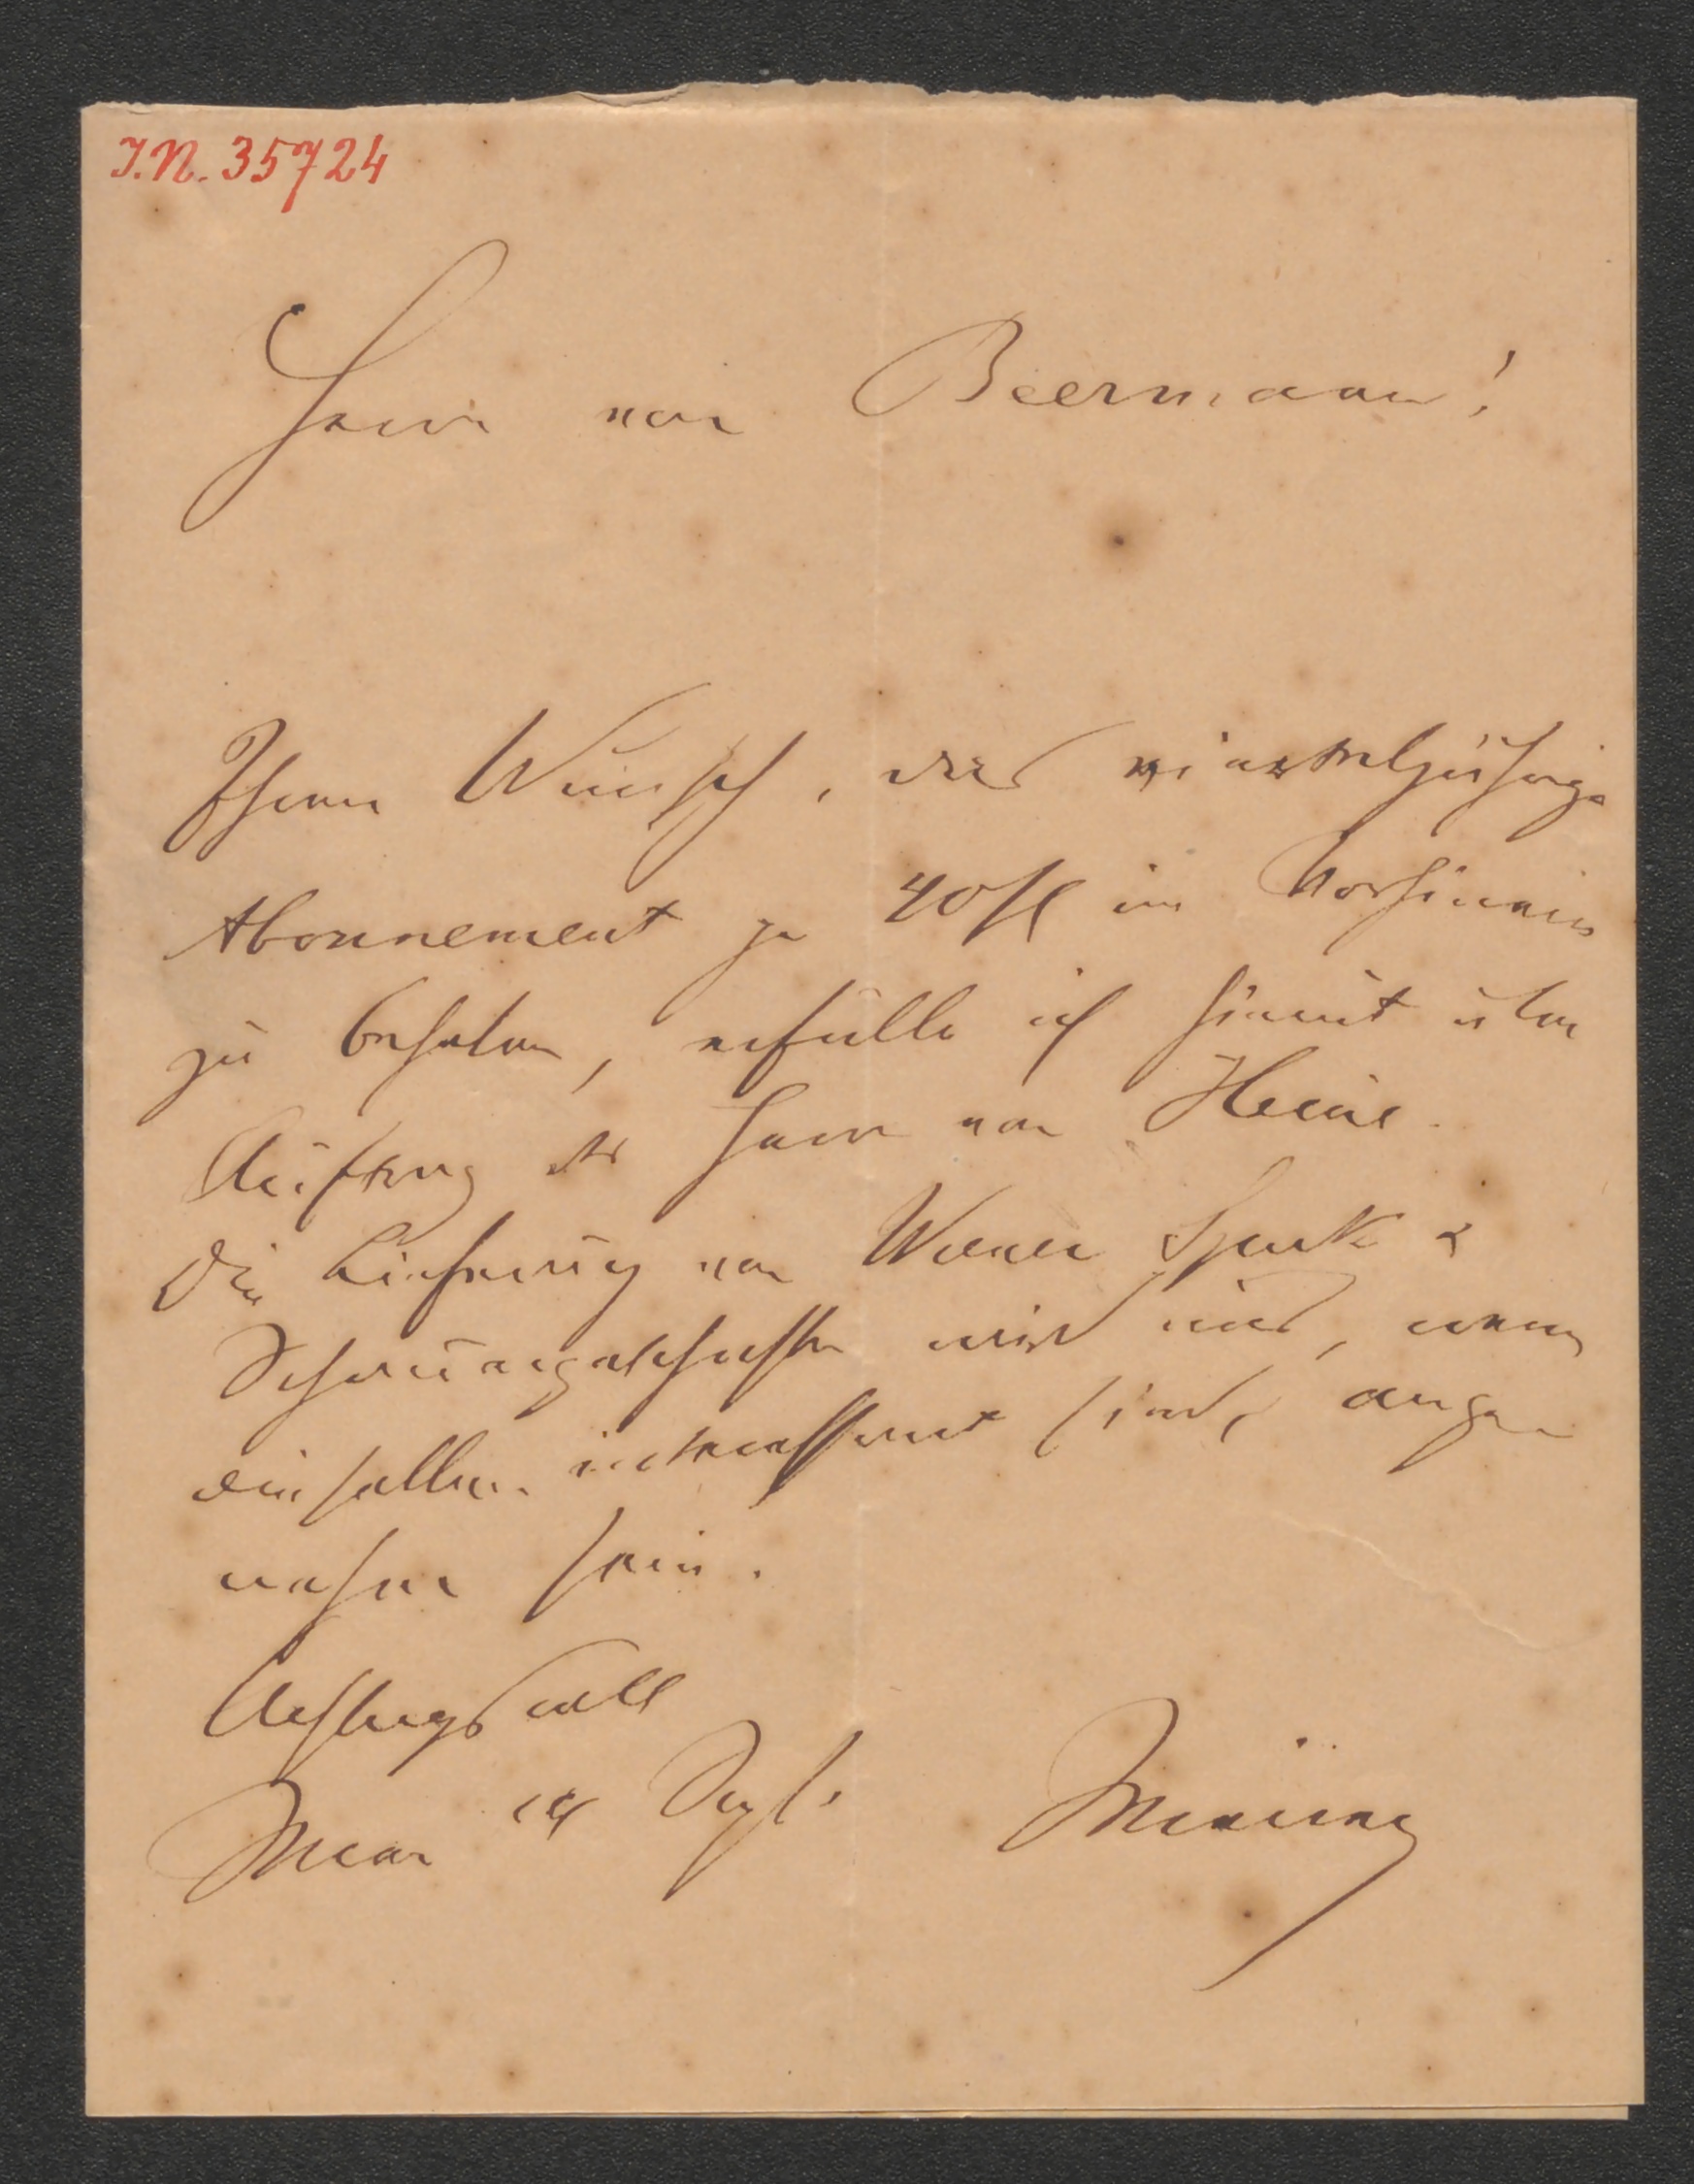 I.N. 35724
Herrn von Beermann!
Ihrem Wunsch, das vierteljährige
Abonnement zu 40 fl im Vorhinein
zu beheben, erfülle ich hiemit über
Auftrag des Herrn von Heine.
Die Lieferung von Wiener
wird uns, wenn
dieselben interessant sind, ange
nehm sein.
Achtungsvoll
Sept.